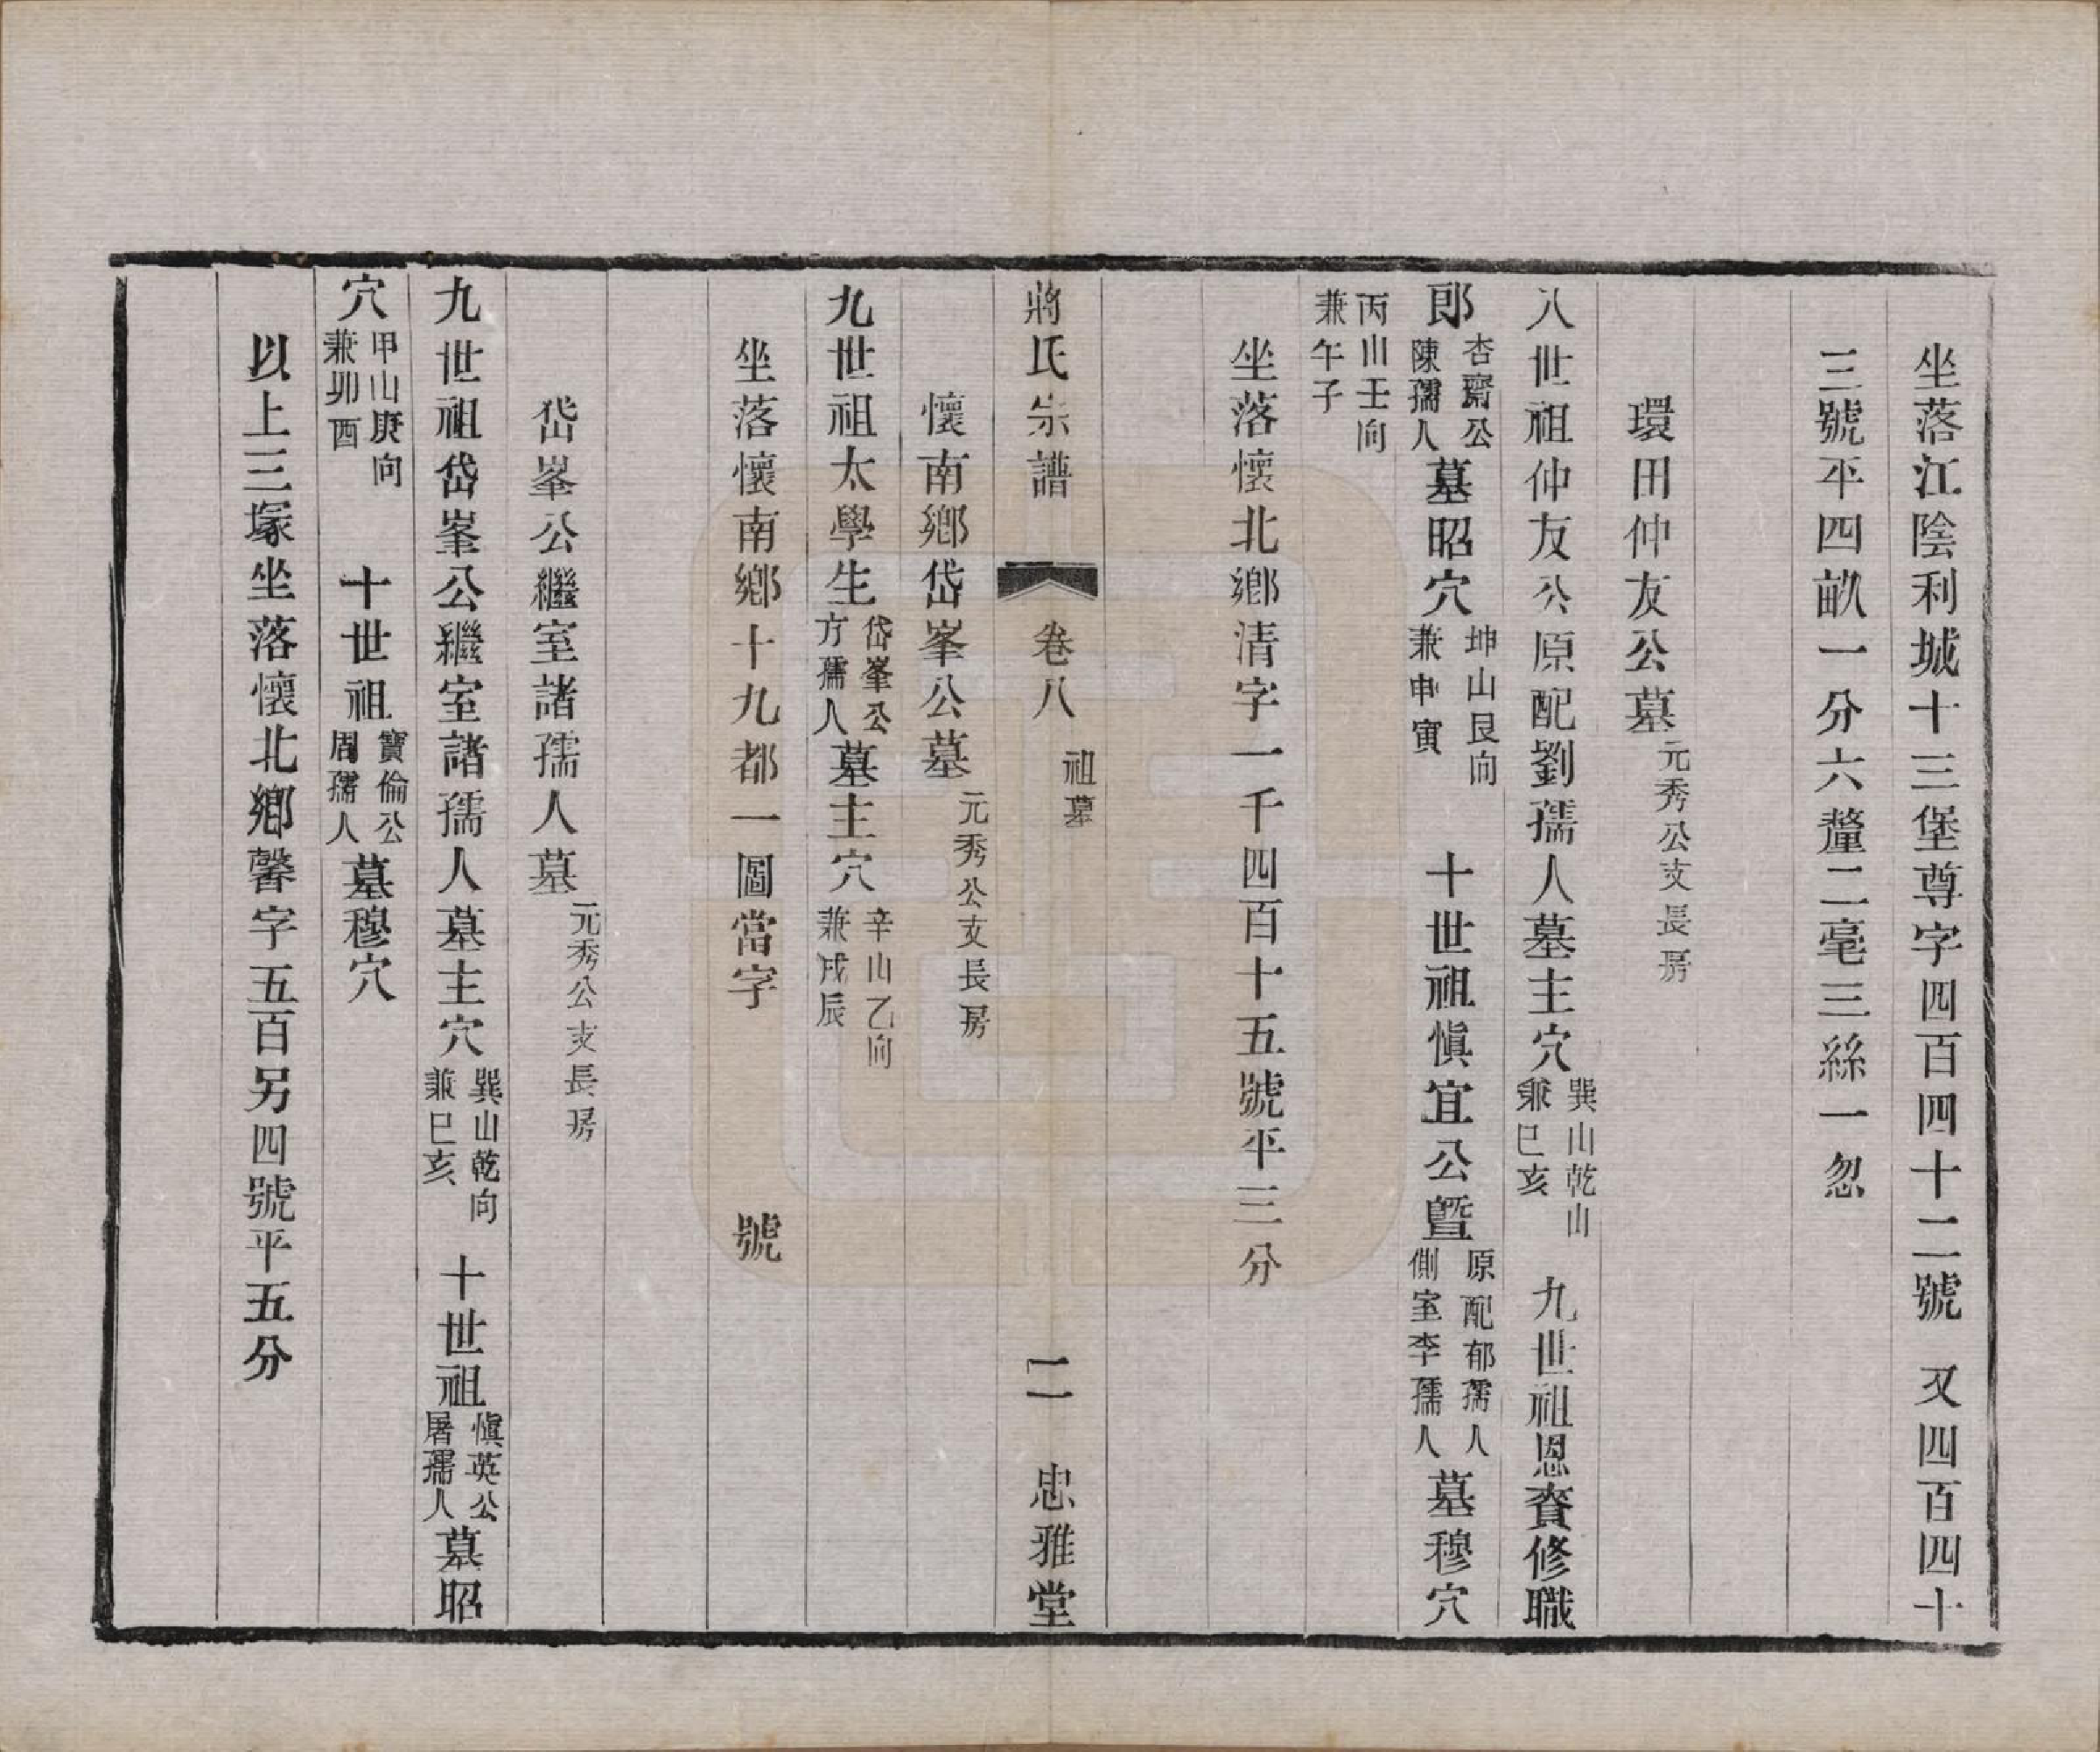 坐落江陰利城十三堡尊字四百四十二號　又四百四十
三號平四畝一分六釐二毫三絲一忽
環田仲友公墓元秀公支長房
八世祖仲友公原配劉孺人墓主穴巽山乾山兼巳亥　九世祖恩賚修職
郎杏齋公陳孺人墓昭穴坤山艮向兼申寅　十世祖愼宜公曁原配郁孺人側室李孺人墓穆穴
丙山壬向兼午子
坐落懷北鄉清字一千四百十五號平三分
蔣氏宗譜　卷八　祖墓　二　忠雅堂
懷南鄉岱峯公墓元秀公支長房
九世祖太學生岱峯公方孺人墓主穴辛山乙向兼戌辰
坐落懷南鄉十九都一圖當字　號
岱峯公繼室諸孺人墓元秀公支長房
九世祖岱峯公繼室諸孺人墓主穴巽山乾向兼巳亥　十世祖愼英公屠孺人墓昭
穴甲山庚向兼卯酉　十世祖寶倫公周孺人墓穆穴
以上三塚坐落懷北鄉馨字五百另四號平五分